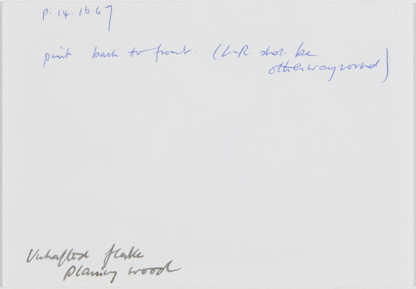 P. 14.16.67
print back to front. (L-R shd. be
other way round)
Unhafted flake
planing wood